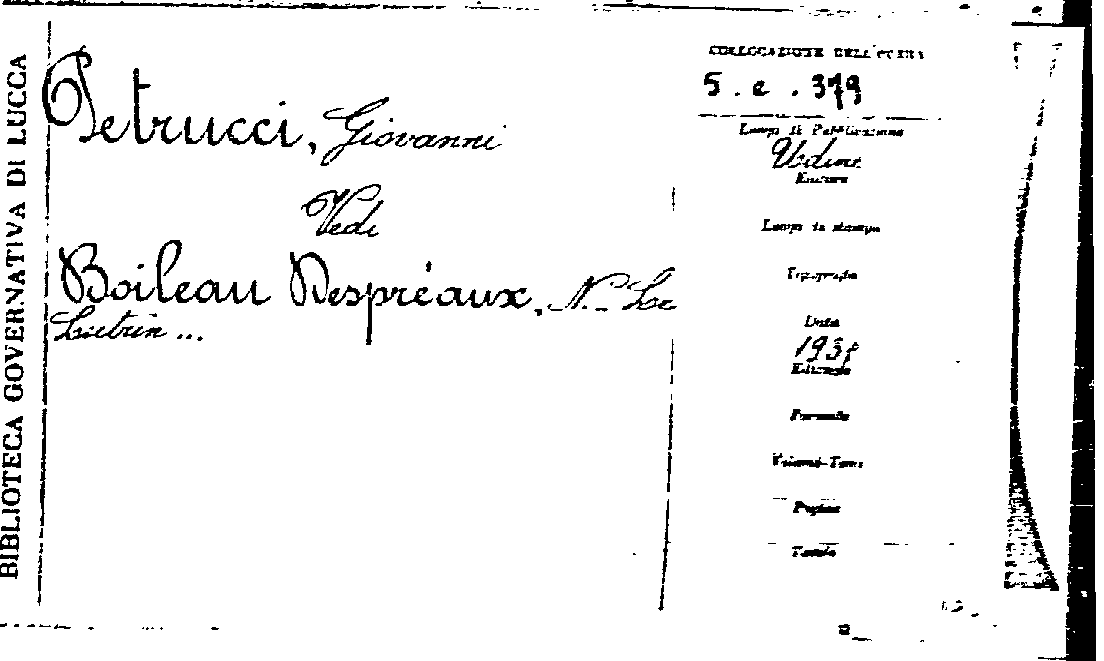 BIBLIOTECA GOVERNATIVA DI LUCCA
Petrucci, Giovanni
Vedi
Boileau Despréaux, N. - Le
Lutrin ...
COLLOCAZIONE DELL'OPERA
5. e. 379
Luogo di Pubblicazione
Udine
Editore
Luogo di stampa
Tipografia
Data
Edizione
Formato
Volumi-Tomi
Pagine
Tavole